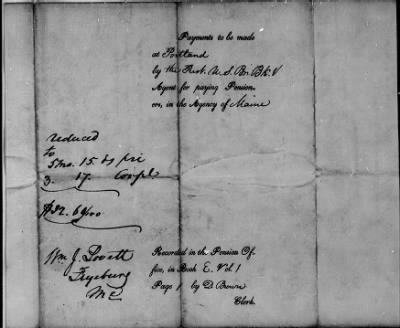 Payments to be made
at Portland
by the Prest. U.S. Br. Bk.
Agent for paying Pension-
ers, in the Agency of Maine
reduced
to
5 mo. 15 ds pri
3. 17.
$32. 69/100
Wm J. Lovett
Fryeburg
Me
Recorded in the Pension Of-
fice, in Book E. Vol 1
Page 1 by D Brown
Clerk.